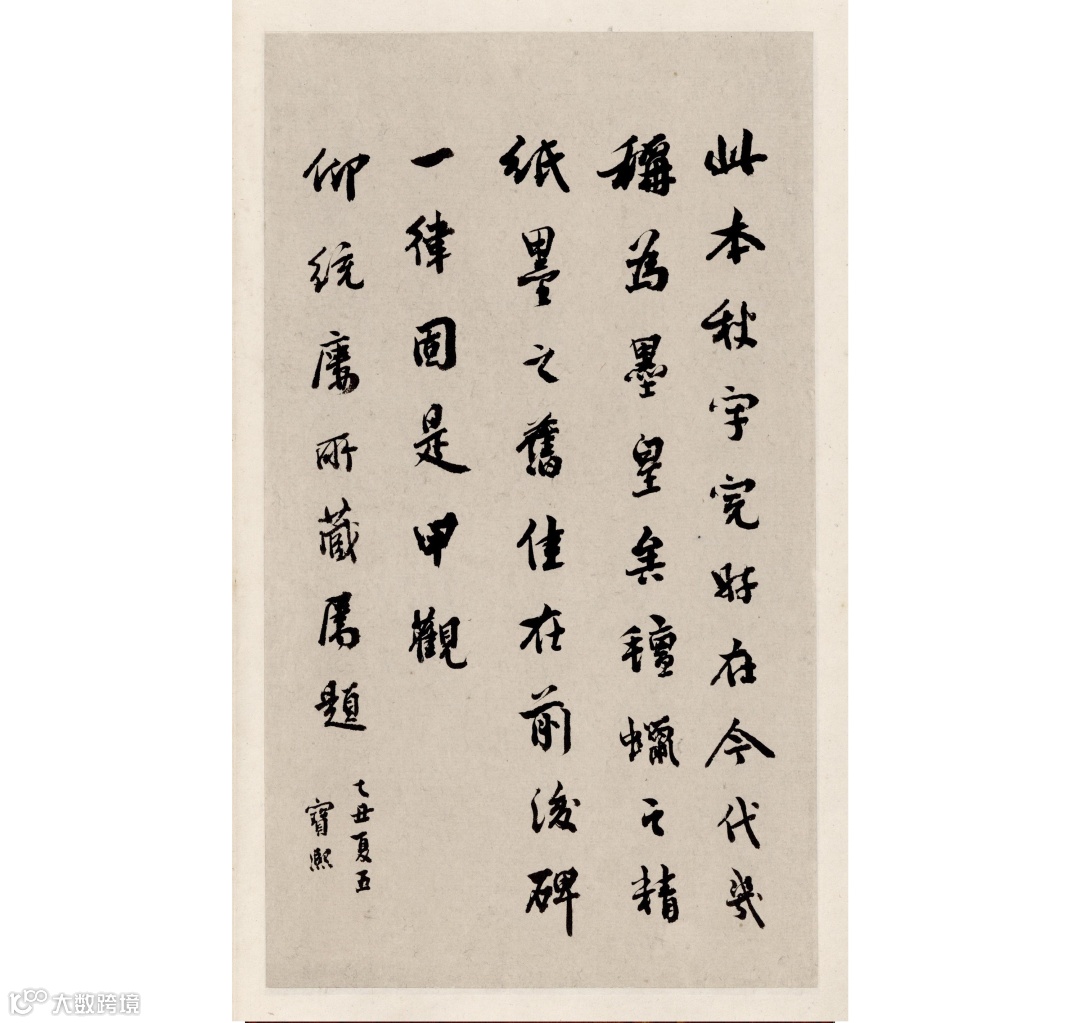 此本秋字完好在今代幾
稱為墨皇矣氊蠟之精
紙墨之舊佳在前後碑
一律固是甲觀
仰統廔所藏屬題
乙丑夏五
寶熙
大数跨境